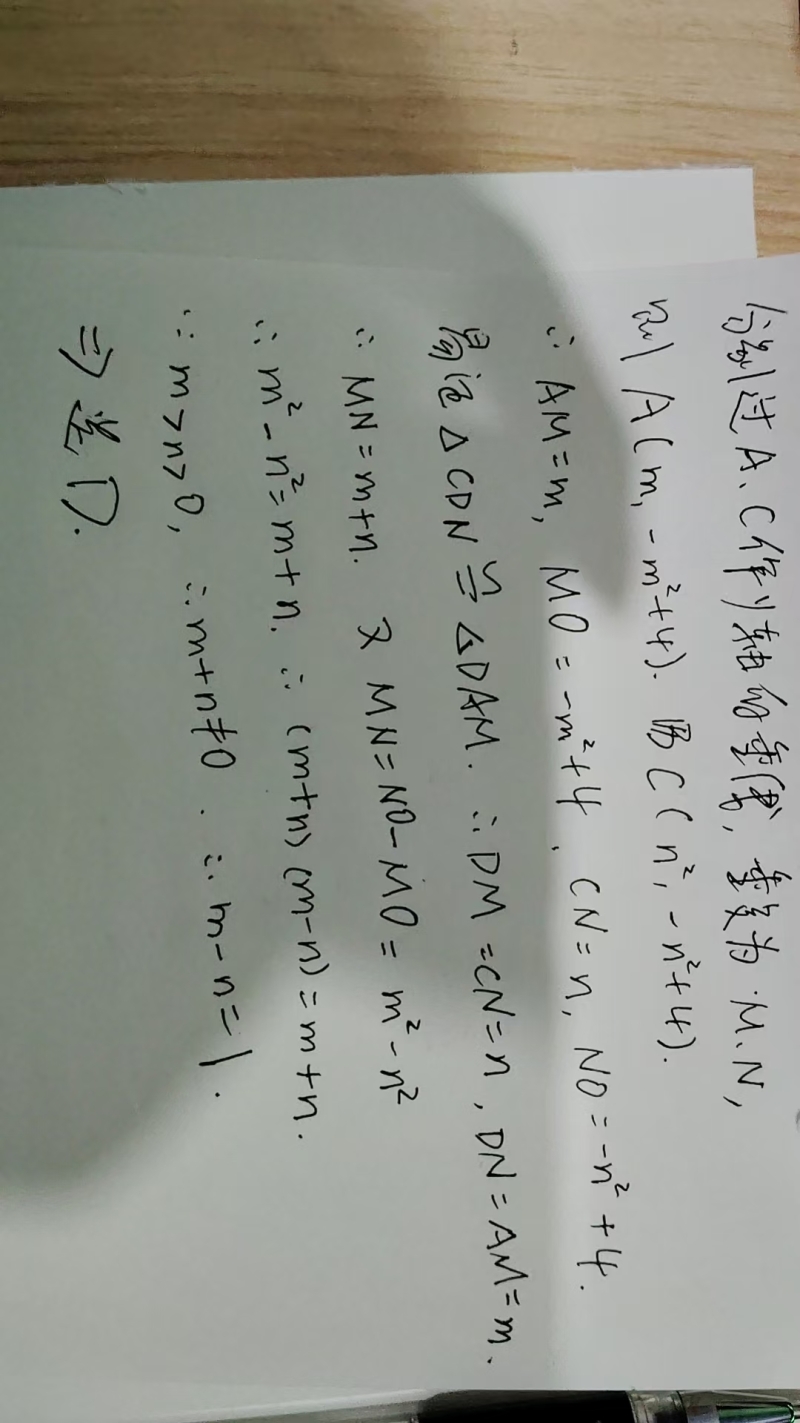 分别过A、C作y轴的垂线, 垂足为M、N,
则 A(m, -m²+4). C(n², -n²+4).
∴ AM=m, MO=-m²+4, CN=n, NO=-n²+4.
易证△CDN≌△DAM. ∴DM=CN=n, DN=AM=m.
∴ MN=m+n. 又 MN=NO-MO=m²-n²
∴ m²-n²=m+n. ∴ (m+n)(m-n)=m+n.
∵ m>n>0, ∴m+n≠0. ∴m-n=1.
⇒ 选D.